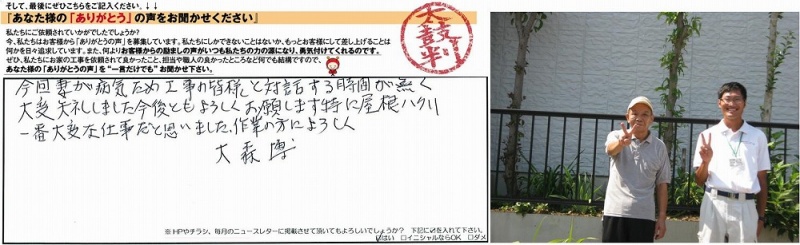 そして、最後にぜひこちらをご記入ください。↓↓
『あなた様の「ありがとう」の声をお聞かせください』
私たちにご依頼されていかがでしたでしょうか？
今、私たちはお客様から「ありがとうの声」を募集しています。私たちにしかできないことはないか、もっとお客様にして差し上げることは
何かを日々追求しています。また、何よりお客様からの励ましの声がいつも私たちの力の源になり、勇気付けてくれるのです。
ぜひ、私たちにお家の工事を依頼されて良かったこと、担当や職人の良かったところなど何でも結構ですので、
あなた様の「ありがとうの声」を“一言だけでも”お聞かせ下さい。
太鼓判
今回妻が病気ため工事の皆様と対話する時間が無く
大変失礼しました今後ともよろしくお願します特に屋根ハクリ
一番大変な仕事だと思いました、作業の方によろしく
大森 博
※HPやチラシ、毎月のニュースレターに掲載させて頂いてもよろしいでしょうか？ 下記に☑を入れて下さい。
☑はい □イニシャルならOK □ダメ